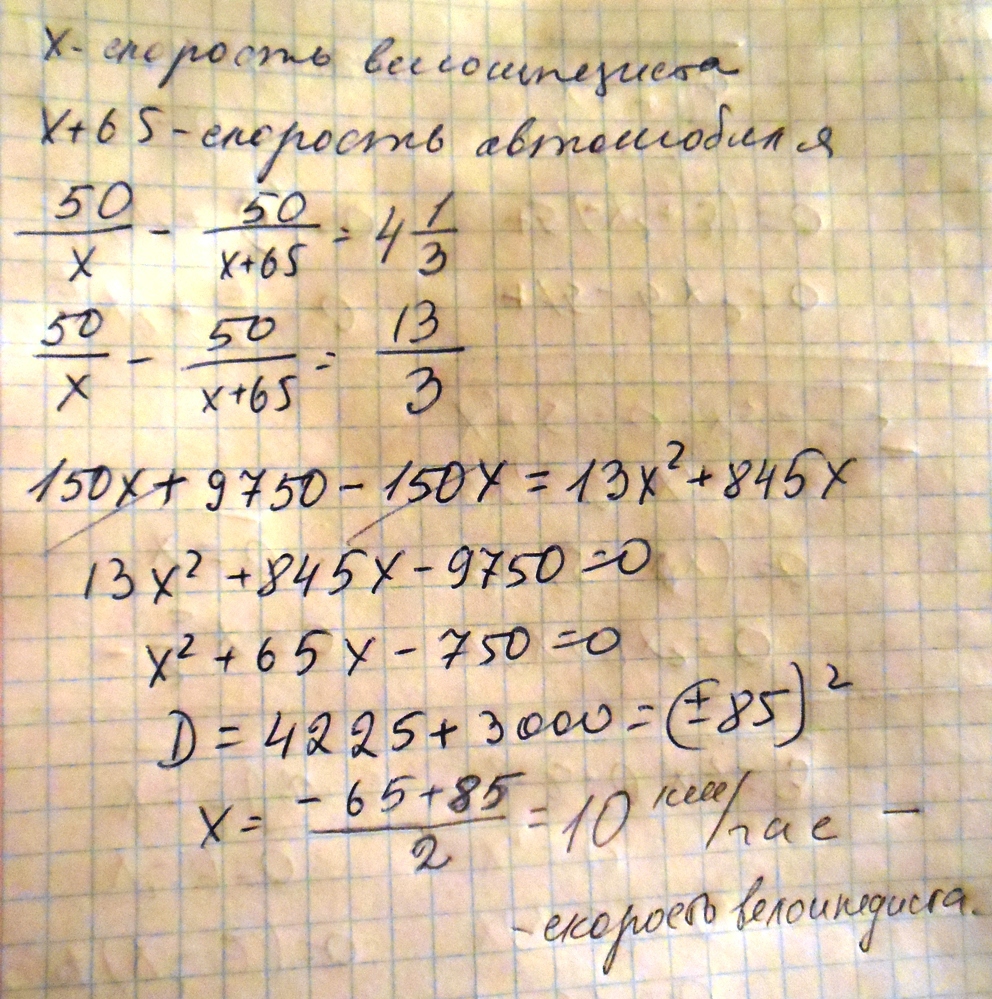 x - скорость велосипедиста
x+65 - скорость автомобиля
50/x - 50/(x+65) = 4 1/3
50/x - 50/(x+65) = 13/3
150x + 9750 - 150x = 13x² + 845x
13x² + 845x - 9750 = 0
x² + 65x - 750 = 0
D = 4225 + 3000 = (±85)²
x = (-65+85)/2 = 10 км/час -
- скорость велосипедиста.